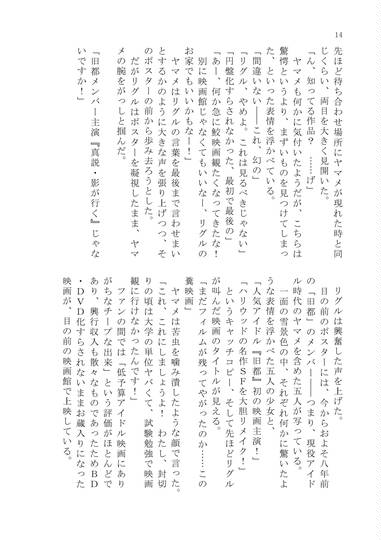 14
先ほど待ち合わせ場所にヤマメが現れた時と同
じくらい、両目を大きく見開いた。
「ん、知ってる作品？　……げ」
　ヤマメも何かに気付いたようだが、こちらは
驚愕というより、まずいものを見つけてしまっ
た、といった表情を浮かべている。
「間違いない――これ、幻の」
「リグル、やめよ。これは見るべきじゃない」
「円盤化すらされなかった、最初で最後の」
「あー、何か急に鮫映画観たくなってきたな！
　別に映画館じゃなくてもいいなー、リグルの
お家でもいいかもなー！」
　ヤマメはリグルの言葉を最後まで言わせまい
とするかのように大きな声を張り上げつつ、そ
のポスターの前から歩み去ろうとした。
　だがリグルはポスターを凝視したまま、ヤマ
メの腕をがっしと掴んだ。
「『旧都メンバー主演『真説・影が行く』じゃな
いですか！」
　リグルは興奮した声を上げた。
　目の前のポスターには、今からおよそ八年前
の「旧都」のメンバー――つまり、現役アイド
ル時代のヤマメを含めた五人が写っている。
　一面の雪景色の中、それぞれ何かに驚いたよ
うな表情を浮かべた五人の少女と、
「人気アイドル『旧都』初の映画主演！」
「ハリウッドの名作ＳＦを大胆リメイク！」
　というキャッチコピー、そして先ほどリグル
が叫んだ映画のタイトルが見える。
「まだフィルムが残ってやがったのか……この
糞映画」
　ヤマメは苦虫を噛み潰したような顔で言った。
「これ、これにしましょうよ！　わたし、封切
りの頃は大学の単位ヤバくて、試験勉強で映画
観に行けなかったんです！」
　ファンの間では「低予算アイドル映画にあり
がちなチープな出来」という評価がほとんどで
あり、興行収入も散々なものであったためＢＤ
・ＤＶＤ化すらされないままお蔵入りになった
映画が、目の前の映画館で上映している。